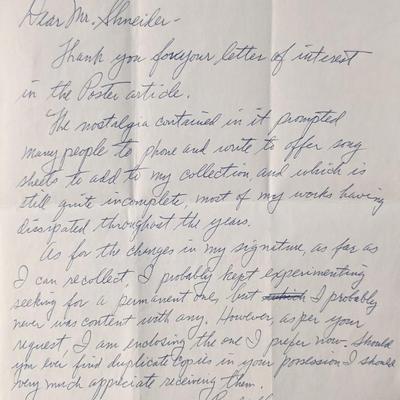 Dear Mr. Shneider-
Thank you for your letter of interest
in the Poster article.
The nostalgia contained in it prompted
many people to phone and write to offer song
sheets to add to my collection and which is
still quit incomplete, most of my works having
dissipated throughout the years.
As for the changes in my signature, as far as
I can recollect, I probably kept experimenting
seeking for a permanent one, but which I probably
never was content with any. However, as per your
request, I am enclosing the one I prefer now. Should
you ever find duplicate copies in your possession I should
very much appreciate receiving them.